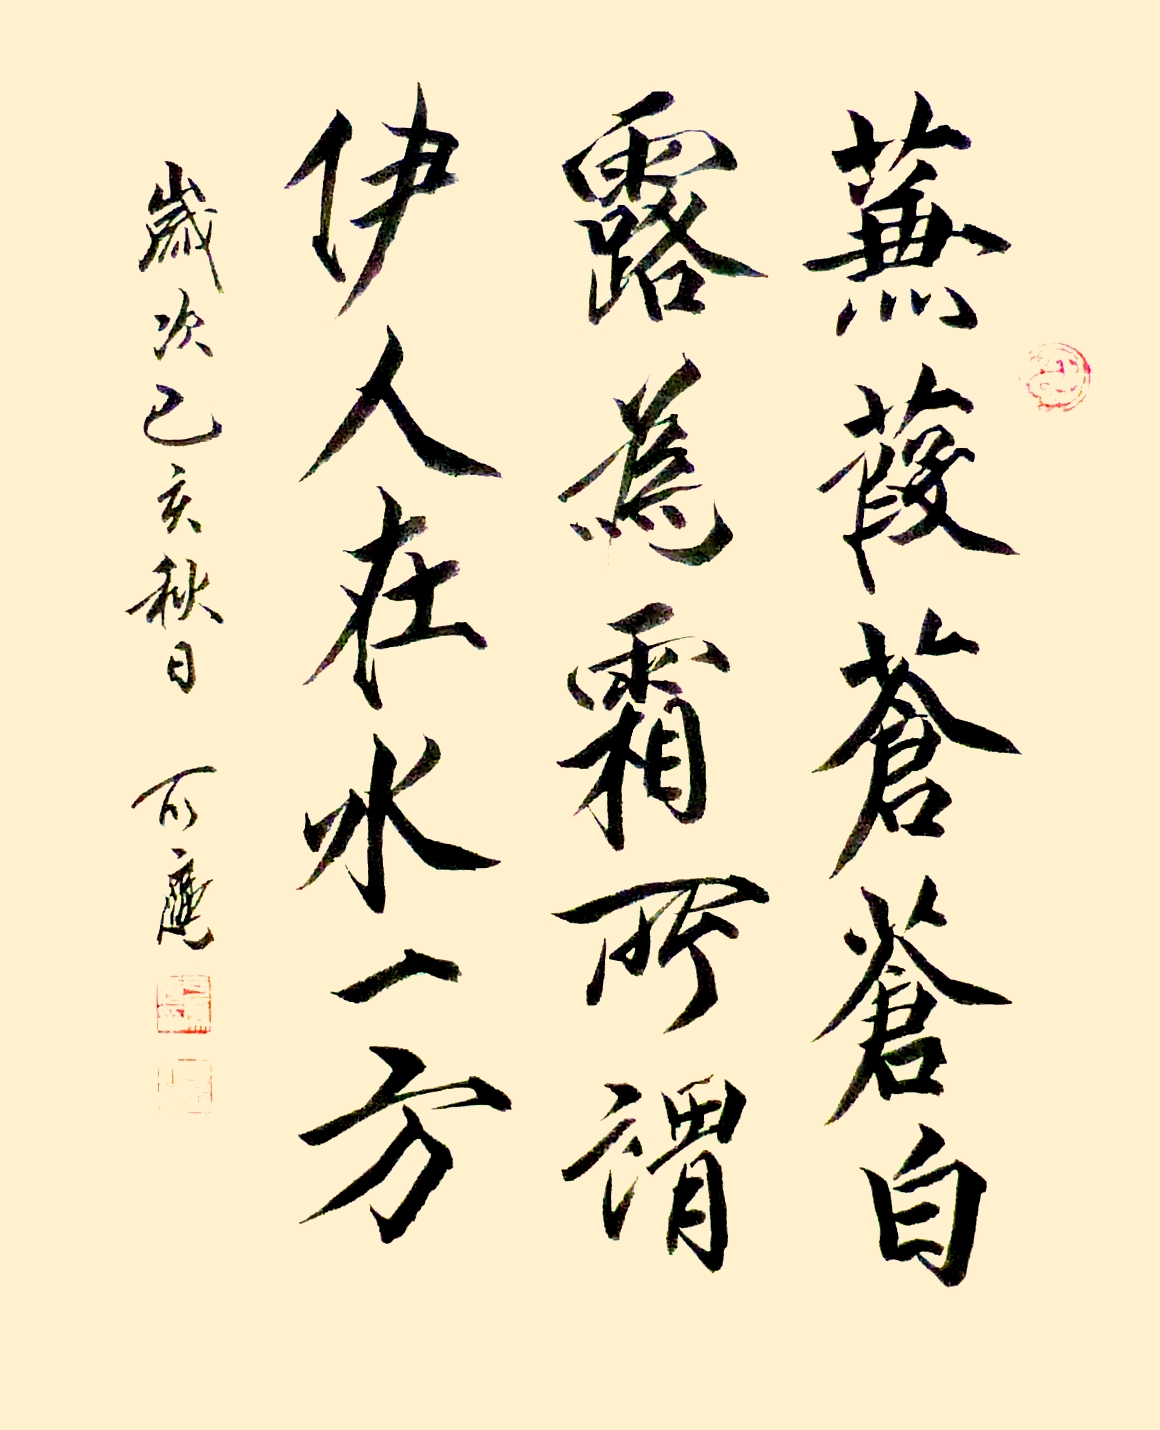 蒹葭蒼蒼白
露為霜所謂
伊人在水一方
歲次己亥秋日